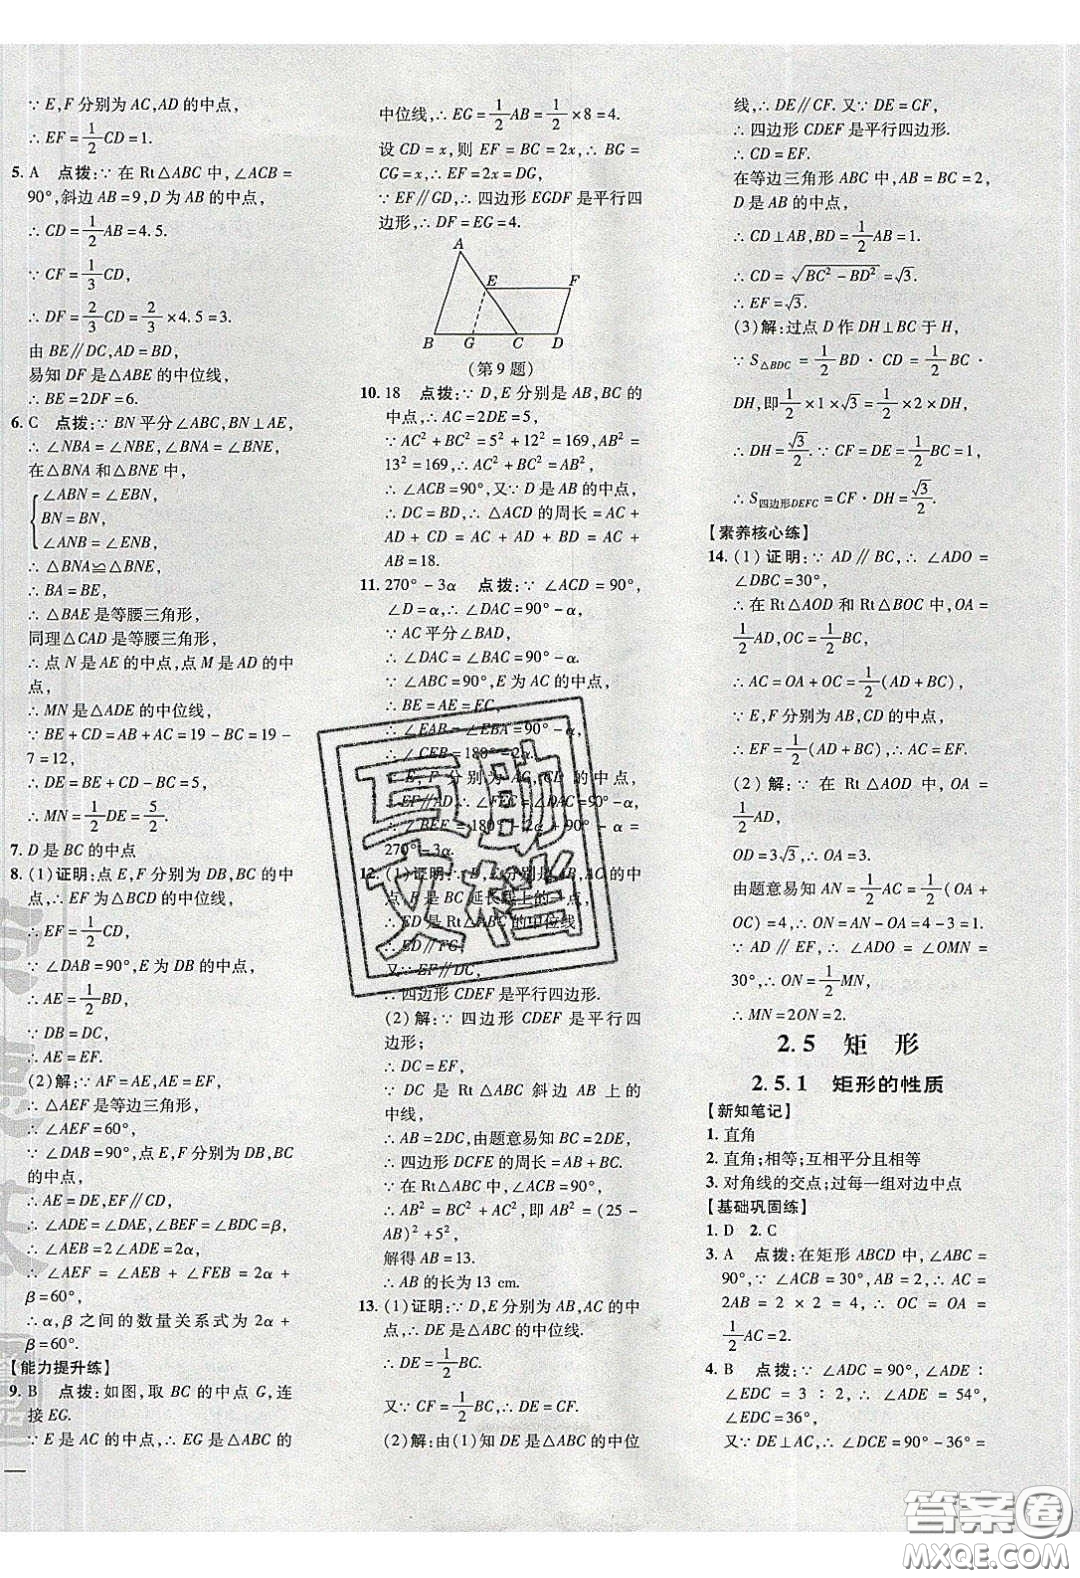 ∵E,F分别为AC,AD的中点,
∴EF=1/2CD=1.
5. A 点拨:∵在Rt△ABC中,∠ACB=
90°,斜边AB=9,D为AB的中点,
∴CD=1/2AB=4.5.
∵CF=1/3CD,
∴DF=2/3CD=2/3×4.5=3.
由BE∥DC,AD=BD,
易知DF是△ABE的中位线,
∴BE=2DF=6.
6. C 点拨:∵BN平分∠ABC,BN⊥AE,
∴∠NBA=∠NBE,∠BNA=∠BNE,
在△BNA和△BNE中,
∠ABN=∠EBN,
BN=BN,
∠ANB=∠ENB,
∴△BNA≌△BNE,
∴BA=BE,
∴△BAE是等腰三角形,
同理△CAD是等腰三角形,
∴点N是AE的中点,点M是AD的中
点,
∴MN是△ADE的中位线,
∵BE+CD=AB+AC=19-BC=19-
7=12,
∴DE=BE+CD-BC=5,
∴MN=1/2DE=5/2.
7. D是BC的中点
8. (1)证明:点E,F分别为DB,BC的中
点,∴EF为△BCD的中位线,
∴EF=1/2CD,
∵∠DAB=90°,E为DB的中点,
∴AE=1/2BD,
∵DB=DC,
∴AE=EF.
(2)解:∵AF=AE,AE=EF,
∴△AEF是等边三角形,
∴∠AEF=60°,
∵∠DAB=90°,点E,F分别为DB,BC
的中点,
∴AE=DE,EF∥CD,
∴∠ADE=∠DAE,∠BEF=∠BDC=β,
∴∠AEB=2∠ADE=2α,
∴∠AEF=∠AEB+∠FEB=2α+
β=60°,
∴α,β之间的数量关系式为2α+
β=60°.
【能力提升练】
9. B 点拨:如图,取BC的中点G,连
接EG.
∵E是AC的中点,∴EG是△ABC的
中位线,∴EG=1/2AB=1/2×8=4.
设CD=x,则EF=BC=2x,∴BG=
CG=x,∴EF=2x=DG,
∵EF∥GD,∴四边形EGDF是平行四
边形,∴DF=EG=4.
A
E F
B G C D
(第9题)
10. 18 点拨:∵D,E分别是AB,BC的
中点,∴AC=2DE=5,
∵AC²+BC²=5²+12²=169,AB²=
13²=169,∴AC²+BC²=AB²,
∴∠ACB=90°,又∵D是AB的中点,
∴DC=BD,∴△ACD的周长=AC+
AD+CD=AC+AD+BD=AC+
AB=18.
11. 270°-3α 点拨:∵∠ACD=90°,
∠D=α,∴∠DAC=90°-α,
∵AC平分∠BAD,
∴∠DAC=∠BAC=90°-α.
∵∠ABC=90°,E为AC的中点,
∴BE=AE=EC,
∴∠EAB=∠EBA=90°-α,
∴∠CEB=180°-2α.
∵E,F分别为AC,CD的中点,
∴EF∥AD,∴∠FEC=∠DAC=90°-α,
∴∠BEF=180°-2α+90°-α=
270°-3α.
12. (1)证明:∵D,E分别是AB,AC的中
点,F是BC延长线上的一点,
∴ED是Rt△ABC的中位线,
∴ED∥FC,
又∵EF∥DC,
∴四边形CDEF是平行四边形.
(2)解:∵四边形CDEF是平行四
边形;
∴DC=EF,
∵DC是Rt△ABC斜边AB上的
中线,
∴AB=2DC,由题意易知BC=2DE,
∴四边形DCFE的周长=AB+BC.
∵在Rt△ABC中,∠ACB=90°,
∴AB²=BC²+AC²,即AB²=(25-
AB)²+5²,
解得AB=13.
∴AB的长为13 cm.
13. (1)证明:∵D,E分别为AB,AC的中
点,∴DE是△ABC的中位线.
∴DE=1/2BC.
又∵CF=1/2BC,∴DE=CF.
(2)解:由(1)知DE是△ABC的中位
线,∴DE∥CF.又∵DE=CF,
∴四边形CDEF是平行四边形.
∴CD=EF.
在等边三角形ABC中,AB=BC=2,
D是AB的中点,
∴CD⊥AB,BD=1/2AB=1.
∴CD=√(BC²-BD²)=√3.
∴EF=√3.
(3)解:过点D作DH⊥BC于H,
∵S△BDC=1/2BD·CD=1/2BC·
DH,即1/2×1×√3=1/2×2×DH,
∴DH=√3/2.∵CF=DE=1/2BC=1,
∴S四边形DEFC=CF·DH=√3/2.
【素养核心练】
14. (1)证明:∵AD∥BC,∴∠ADO=
∠DBC=30°,
∴在Rt△AOD和Rt△BOC中,OA=
1/2AD,OC=1/2BC,
∴AC=OA+OC=1/2(AD+BC),
∵E,F分别为AB,CD的中点,
∴EF=1/2(AD+BC),∴AC=EF.
(2)解:∵在Rt△AOD中,OA=
1/2AD,
OD=3√3,∴OA=3.
由题意易知AN=1/2AC=1/2(OA+
OC)=4,∴ON=AN-OA=4-3=1.
∵AD∥EF,∴∠ADO=∠OMN=
30°,∴ON=1/2MN,
∴MN=2ON=2.
2.5 矩形
2.5.1 矩形的性质
【新知笔记】
1. 直角
2. 直角;相等;互相平分且相等
3. 对角线的交点;过每一组对边中点
【基础巩固练】
1. D 2. C
3. A 点拨:在矩形ABCD中,∠ABC=
90°,∵∠ACB=30°,AB=2,∴AC=
2AB=2×2=4,∴OC=OA=
1/2AC=2.
4. B 点拨:∵∠ADC=90°,∠ADE:
∠EDC=3:2,∴∠ADE=54°,
∠EDC=36°,
又∵DE⊥AC,∴∠DCE=90°-36°=
互助
文档
答案圈
MXQE.COM